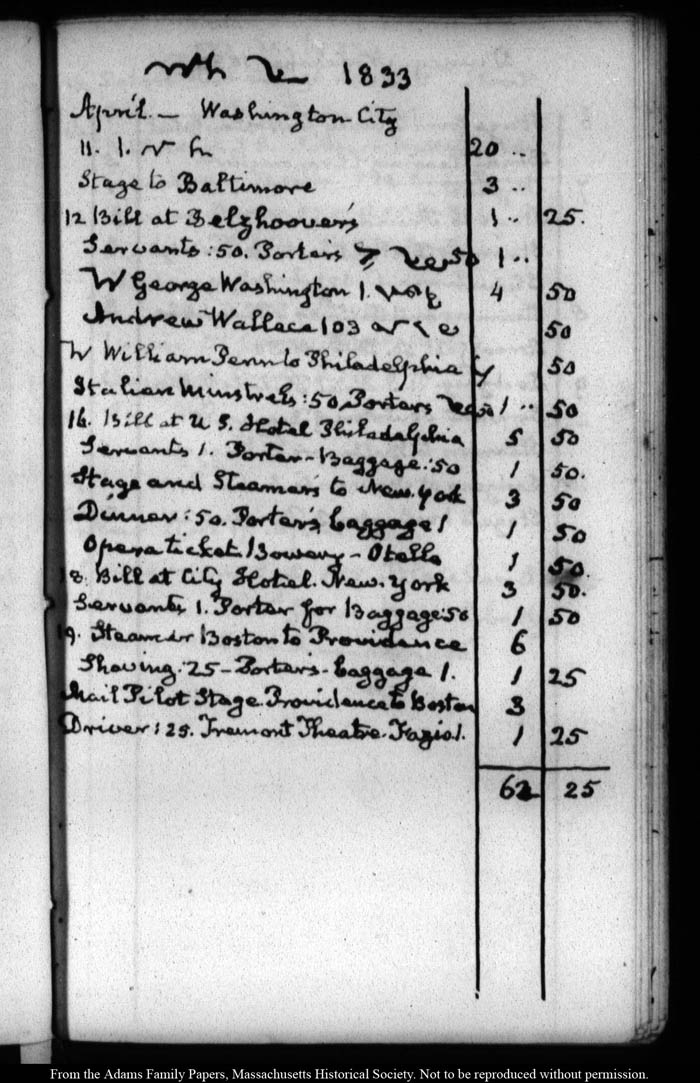 1833
April. — Washington City
11. 20 ..
Stage to Baltimore 3 ..
12 Bill at Belzhoover's 1 .. 25.
Servants :50. Porters 50 1 ..
George Washington 1. 4 50
Andrew Wallace 103 50
William Penn to Philadelphia 50
Italian Minstrels :50 Porters 50 1 .. 50
16. Bill at U S. Hotel Philadelphia 5 50
Servants 1. Porter - Baggage :50 1 50.
Stage and Steamers to New York 3 50
Dinner :50. Porter's baggage 1 1 50
Opera ticket Bowery - Otello 1 50.
18. Bill at City Hotel. New. York 3 50.
Servants 1. Porter for Baggage :50 1 50
19. Steamer Boston to Providence 6
Shaving :25 - Porters - baggage 1. 1 25
Mail Pilot Stage Providence to Boston 3
Driver :25. Tremont Theatre. Fazio 1. 1 25
62 25
From the Adams Family Papers, Massachusetts Historical Society. Not to be reproduced without permission.